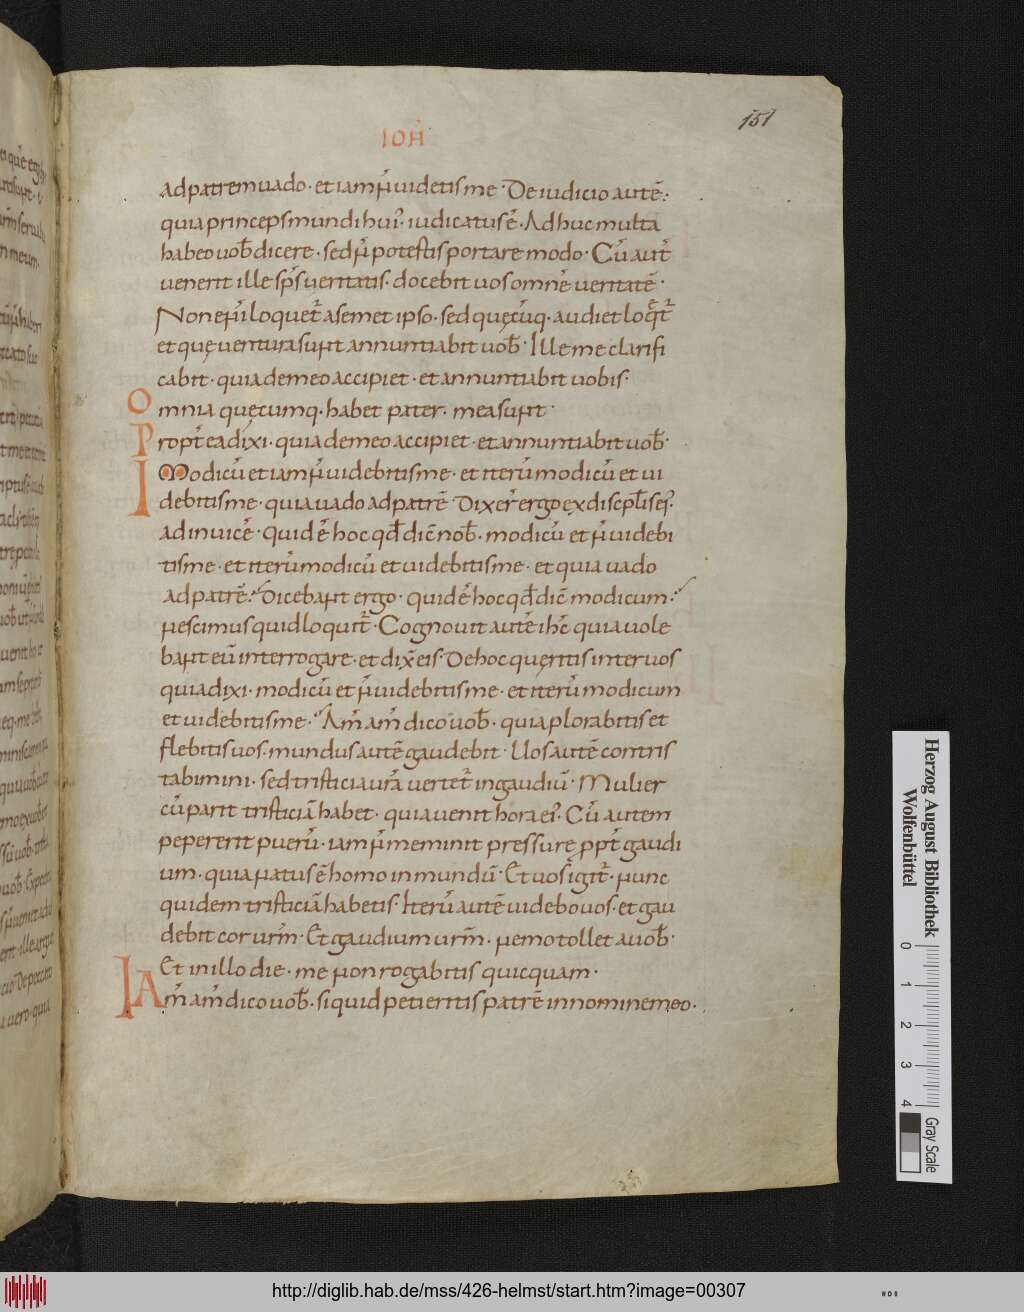 151
IOH̄
ad patrem uado· et iam ñ uidetis me· De iudicio autē·
quia princeps mundi hui᾿ iudicatus ē· Adhuc multa
habeo uob̄ dicere· sed ñ potestis portare modo· Cū aut̄
uenerit ille sp̄s ueritatis· docebit uos omnē ueritatē·
Non enī loquet̄ a semet ipso· sed quęcūq· audiet loq̄t̄
et quę uentura sunt annuntiabit uob̄· Ille me clarifi
cabit· quia de meo accipiet· et annuntiabit uobis·
Omnia quęcumq· habet pater· mea sunt·
Propt̄ ea dixi· quia de meo accipiet· et annuntiabit uob̄·
I Modicū et iam ñ uidebitis me· et iterū modicū et ui
debitis me· quia uado ad patrē Dixer̄ ergo ex discipl̄is ei᾿
ad inuicē· Quid ē hoc qđ dic̄ nob̄· modicū et ñ uidebi
tis me· et iterū modicū et uidebitis me· et quia uado
ad patrē· Dicebant ergo· quid ē hoc qđ dic̄ modicum·
nescimus quid loquit̄· Cognouit autē ih̄c quia uole
bant eū interrogare· et dix̄ eis· De hoc quęritis inter uos
quia dixi· modicū et ñ uidebitis me· et iterū modicum
et uidebitis me· Am̄ am̄ dico uob̄· quia plorabitis et
flebitis uos· mundus autē gaudebit· Uos autē contris
tabimini· sed tristicia ur̄a uertet̄ in gaudiū· Mulier
cū parit tristiciā habet· quia uenit hora ei᾿· Cū autem
pepererit puerū· iam ñ meminit pressurę ppt̄ gaudi
um· quia natus ē homo in mundū· Et uos igit̄· nunc
quidem tristiciā habetis· Iterū autē uidebo uos· et gau
debit cor urm̄· Et gaudium urm̄· nemo tollet a uob̄·
I Et in illo die· me non rogabitis quicquam·
Am̄ am̄ dico uob̄· si quid petieritis patrē in nomine meo·
Herzog August Bibliothek
Wolfenbüttel
0 1 2 3 4
Gray Scale
http://diglib.hab.de/mss/426-helmst/start.htm?image=00307